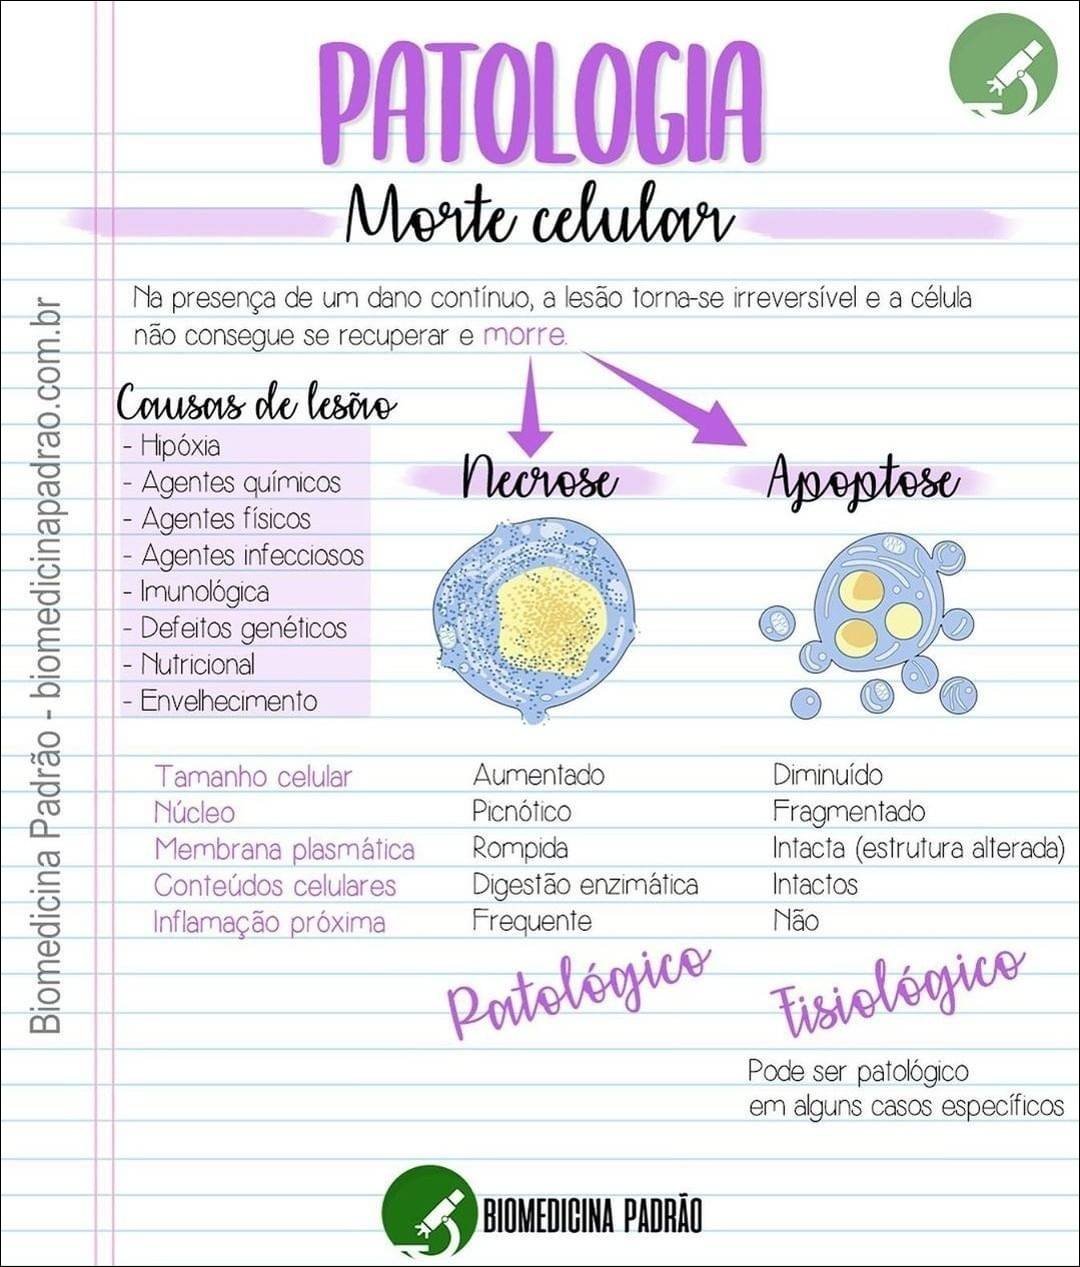 PATOLOGIA
Morte celular
Na presença de um dano contínuo, a lesão torna-se irreversível e a célula
não consegue se recuperar e morre.
Causas de lesão
- Hipóxia
- Agentes químicos
- Agentes físicos
- Agentes infecciosos
- Imunológica
- Defeitos genéticos
- Nutricional
- Envelhecimento
Necrose
Apoptose
Tamanho celular Aumentado Diminuído
Núcleo Picnótico Fragmentado
Membrana plasmática Rompida Intacta (estrutura alterada)
Conteúdos celulares Digestão enzimática Intactos
Inflamação próxima Frequente Não
Patológico
Fisiológico
Pode ser patológico
em alguns casos específicos
Biomedicina Padrão - biomedicinapadrao.com.br
BIOMEDICINA PADRÃO